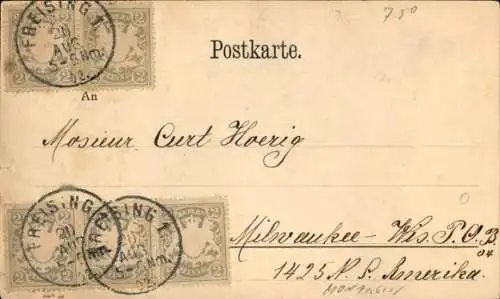 7.50
FREISING 1.
20
AUG
5-6 Nm.
02.
Postkarte.
An
Mosieur Curt Hoerig
FREISING 1.
20
AUG
FREISING 1.
AUG
5-6 Nm.
02.
Milwaukee - Wis. P.O.B
04
1425 N. S. Amerika.